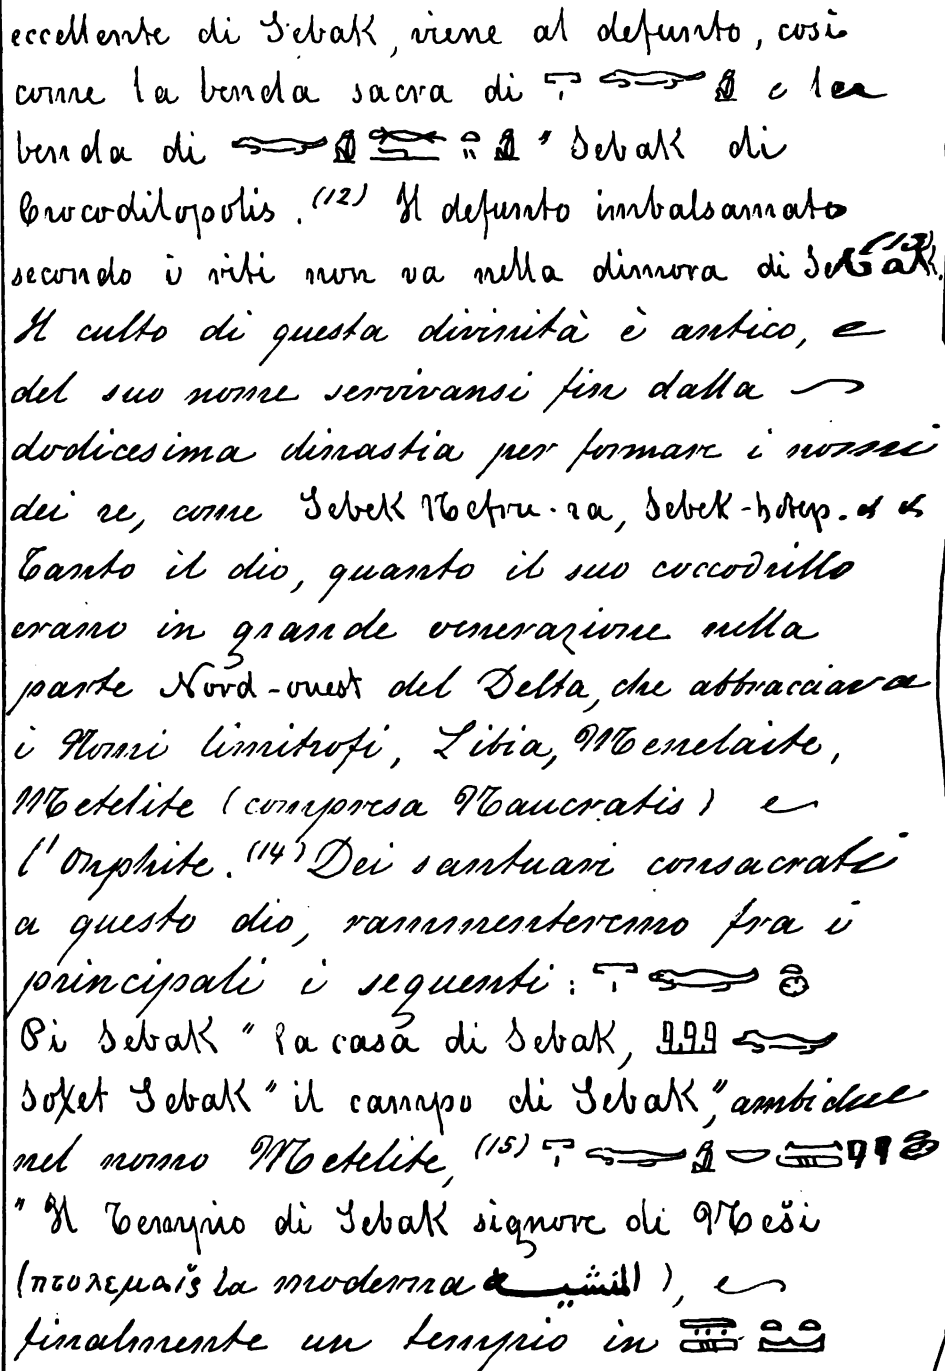 eccellente di Sebak, viene al defunto, così
come la benda sacra di e la
benda di " Sebak di
Crocodilopolis. (12) Il defunto imbalsamato
secondo i riti non va nella dimora di Sebak. (13)
Il culto di questa divinità è antico, e
del suo nome servivansi fin dalla
dodicesima dinastia per formare i nomi
dei re, come Sebek Nefru-ra, Sebek-hotep.
Tanto il dio, quanto il suo coccodrillo
erano in grande venerazione nella
parte Nord-ouest del Delta, che abbracciava
i Nomi limitrofi, Libia, Menelaite,
Metelite (compresa Naucratis) e
l'Onphite. (14) Dei santuari consacrati
a questo dio, rammenteremo fra i
principali i seguenti:
Pi Sebak " la casa di Sebak,
Soχet Sebak " il campo di Sebak", ambidue
nel nomo Metelite, (15)
" Il Tempio di Sebak signore di Meši
(πτολεμαΐς la moderna المنشيه), e
finalmente un tempio in